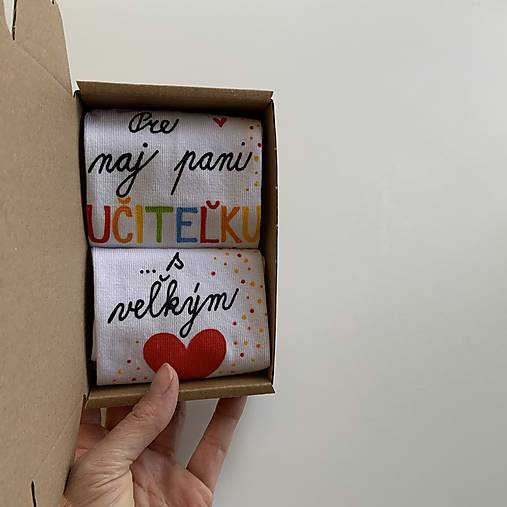 Pre
naj pani
UČITEĽKU
...s
veľkým